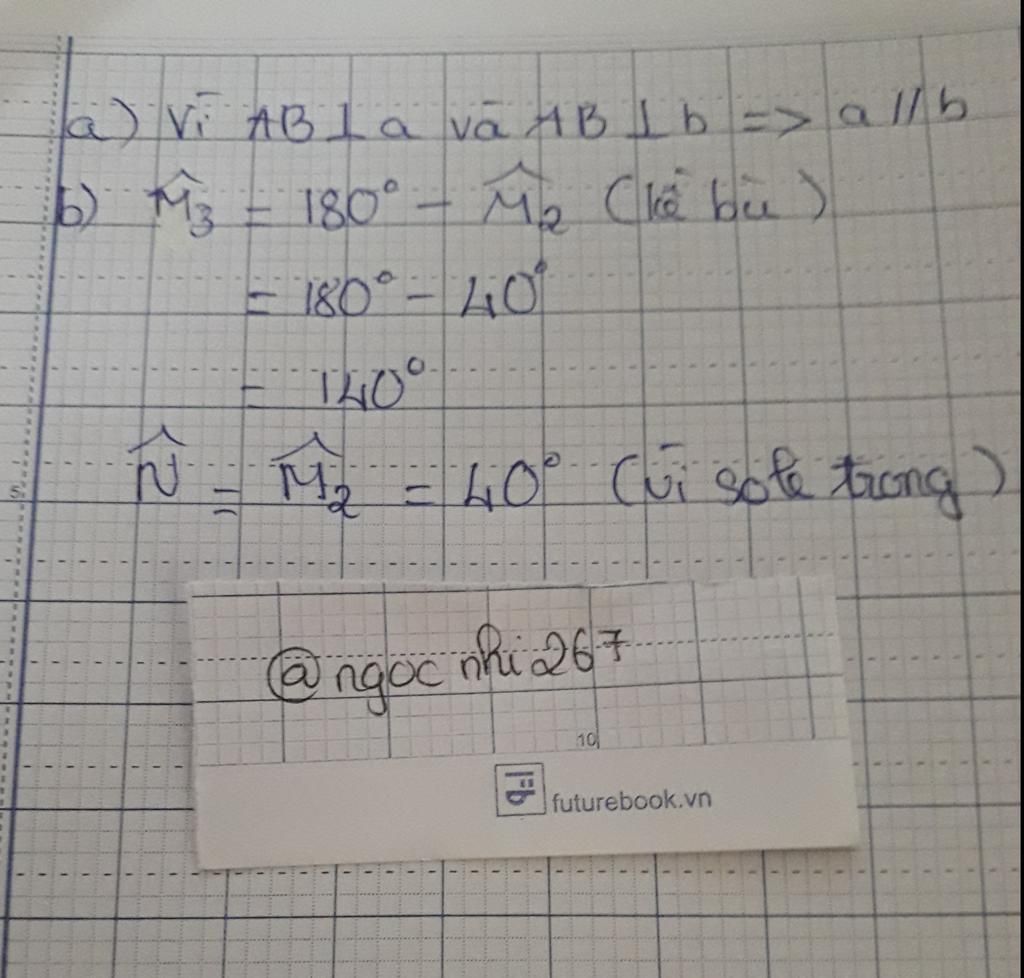 a) Vì AB ⊥ a và AB ⊥ b => a // b
b) M̂₃ = 180° - M̂₂ (kề bù)
= 180° - 40°
= 140°
N̂ = M̂₂ = 40° (vì sole trong)
5
@ngocnhi267
10
futurebook.vn